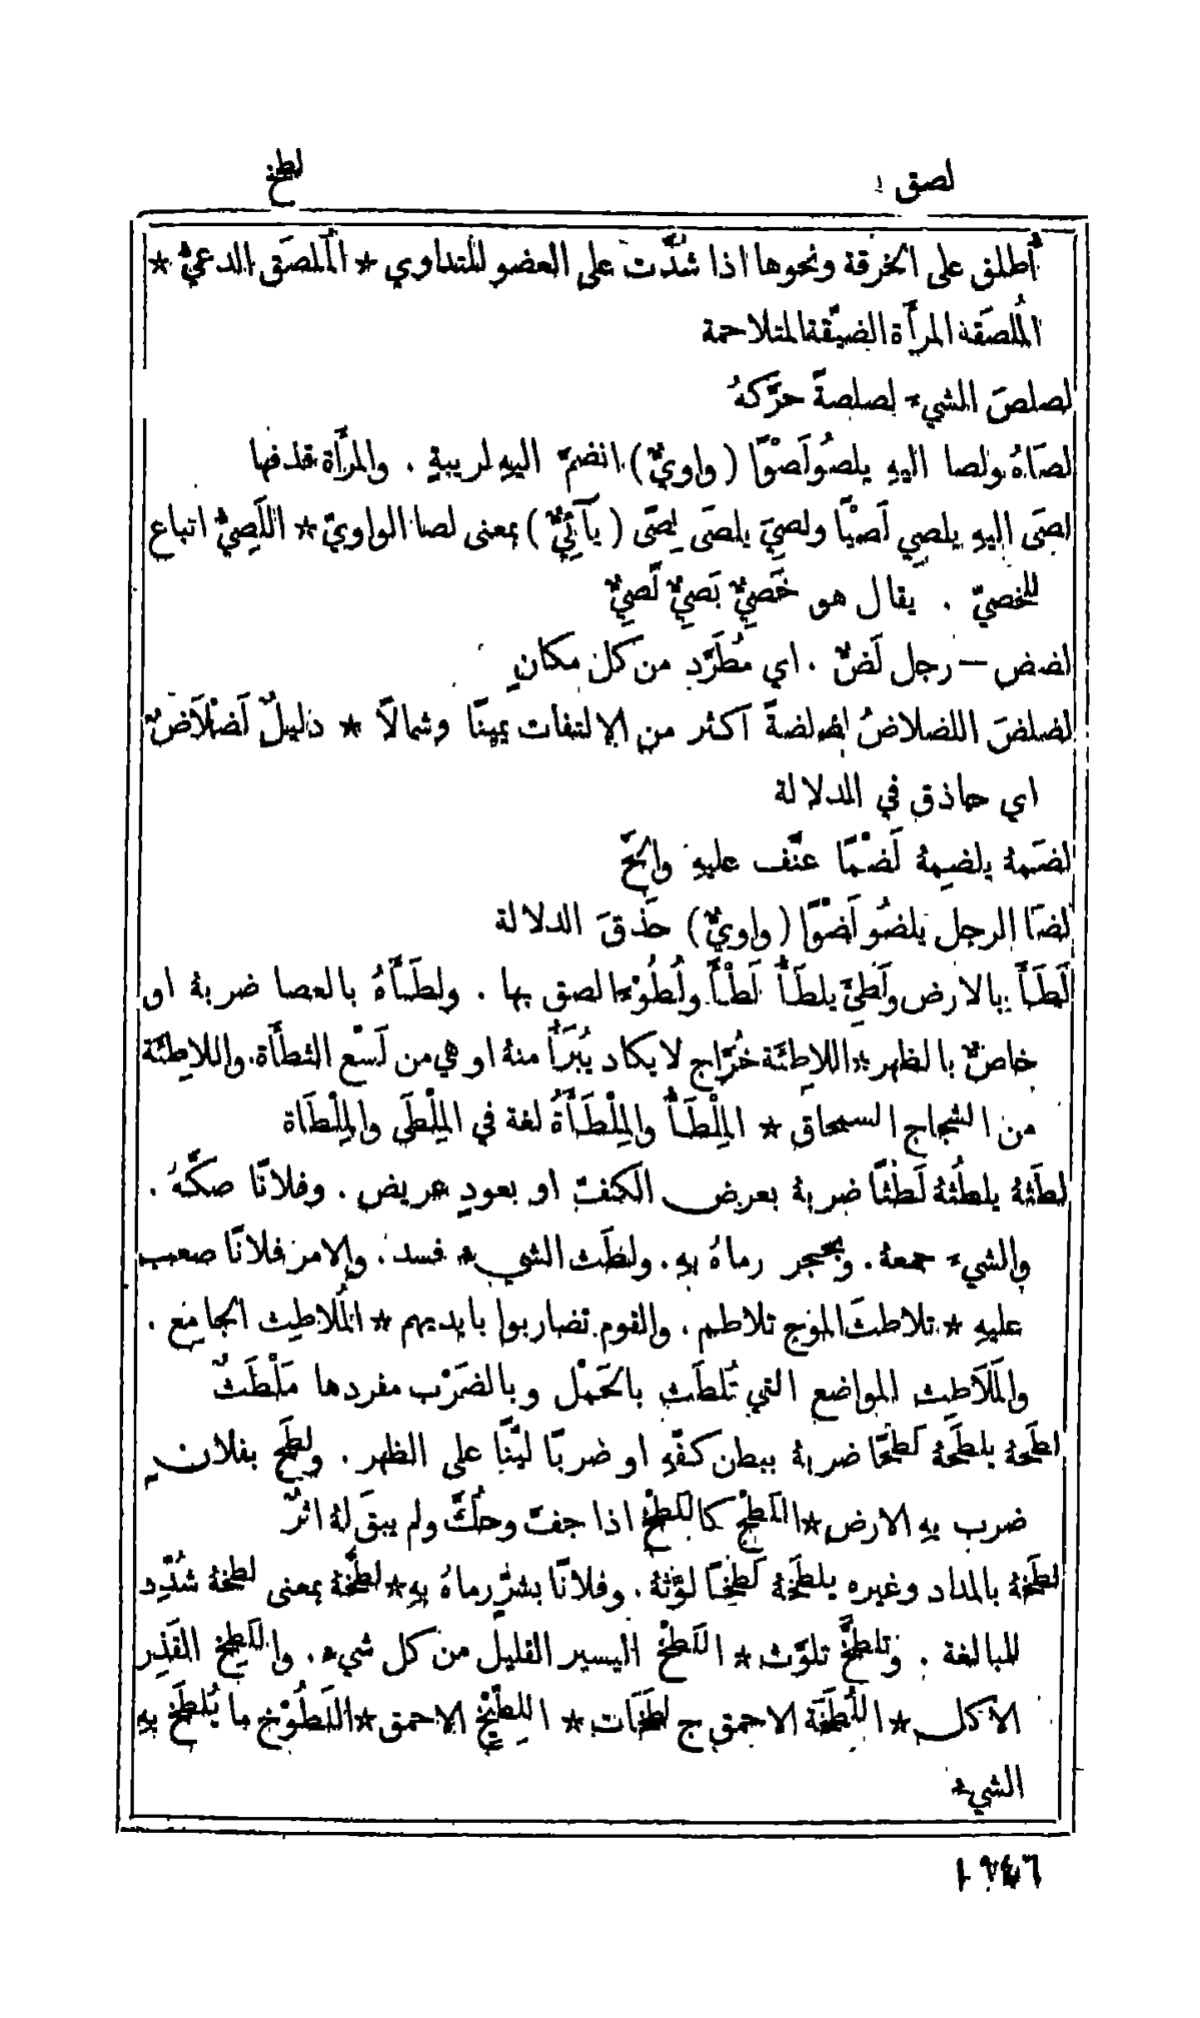 لصق
لطخ
أُطلق على الخرقة ونحوها اذا شُدَّت على العضو للتداوي * المُلصَق الدعيُّ *
المُلصَقة المرأَة الضيّقة المتلاحمة
لصلصَ الشيء لصلصةً حرَّكهُ
لصَاهُ ولصا اليهِ يلصُو لَصْوًا (واويٌّ) انضمَّ اليهِ لريبةٍ . والمرأَة قذفها
لصَى اليهِ يلصِي لَصْيًا ولصِيَ يلصَى لِصًى (يآئِيٌّ) بمعنى لصا الواويّ * اللَصِيُّ اتباع
للخصيّ . يقال هو خَصِيٌّ بَصِيٌّ لَصِيٌّ
لضض — رجل لَضٌّ . اي مُطَرَّد من كل مكانٍ
لضلضَ اللضلاضُ لضلضةً اكثر من الالتفات يمينًا وشمالًا * دليلٌ لَضْلَاضٌ
اي حاذق في الدلالة
لضَمهُ يلضِمهُ لَضْمًا عنَّف عليهِ والحَّ
لضَا الرجل يلضُو لَضْوًا (واويٌّ) حَذقَ الدلالة
لَطَأَ بالارض ولَطِئَ يلطَأُ لَطْأً ولُطُوْءًا لصق بها . ولطَأَهُ بالعصا ضربهُ او
خاصٌّ بالظهر * اللاطِئَة خُرَّاج لا يكاد يُبرَأُ منهُ او هي من لَسْع الثطأَة . واللاطِئَة
من الشجاج السمحاق * المِلْطَأُ والمِلْطَأَةُ لغة في المِلْطَى والمِلْطَاة
لطَثهُ يلطُثهُ لَطْثًا ضربهُ بعرض الكفّ او بعودٍ عريض . وفلانًا صكَّهُ .
والشيءَ جمعهُ . وبحجرٍ رماهُ بهِ . ولطَث الشيء فسد . والامرُ فلانًا صعب
عليهِ * تلاطثَ الموج تلاطم . والقوم تضاربوا بايديهم * المُلاطِث الجامِع .
والمَلَاطِث المواضع التي تُلطَث بالحَمْل وبالضَرْب مفردها مَلْطَثٌ
لطَحهُ يلطَحهُ لَطْحًا ضربهُ ببطن كفّهِ او ضربًا ليّنًا على الظهر . ولطَح بفلانٍ
ضرب بهِ الارض * اللَطْحُ كاللَطْخ اذا جفّ وحُكَّ ولم يبقَ لهُ اثرٌ
لطَخهُ بالمداد وغيرهِ يلطَخهُ لَطْخًا لوَّثهُ . وفلانًا بشرٍّ رماهُ بهِ * لطَّخهُ بمعنى لطخهُ شُدِّد
للمبالغة . وتلطَّخ تلوَّث * اللَطْخ اليسير القليل من كل شيء . واللَطِخ القَذِر
الاكل * اللُطَخَة الاحمق ج لُطَخَات * اللِطِّيْخ الاحمق * اللَطُوْخ ما يُلطَخ بهِ
الشيء